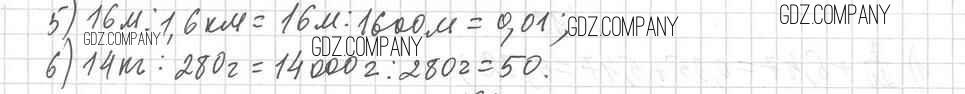 5) 16м : 1,6 км = 16м : 1600м = 0,01; GDZ.COMPANY GDZ.COMPANY
GDZ.COMPANY GDZ.COMPANY
6) 14кг : 280г = 14000г : 280г = 50.